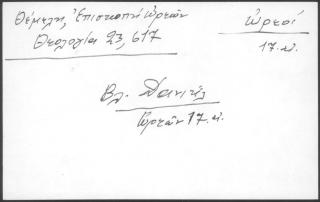 Θέμελη, Ἐπισκοπή Ὠρεῶν
Θεολογία 23, 617
Ὠρεοί
17. αἰ.
Βλ. Δανιήλ
Ὠρεῶν 17. αἰ.